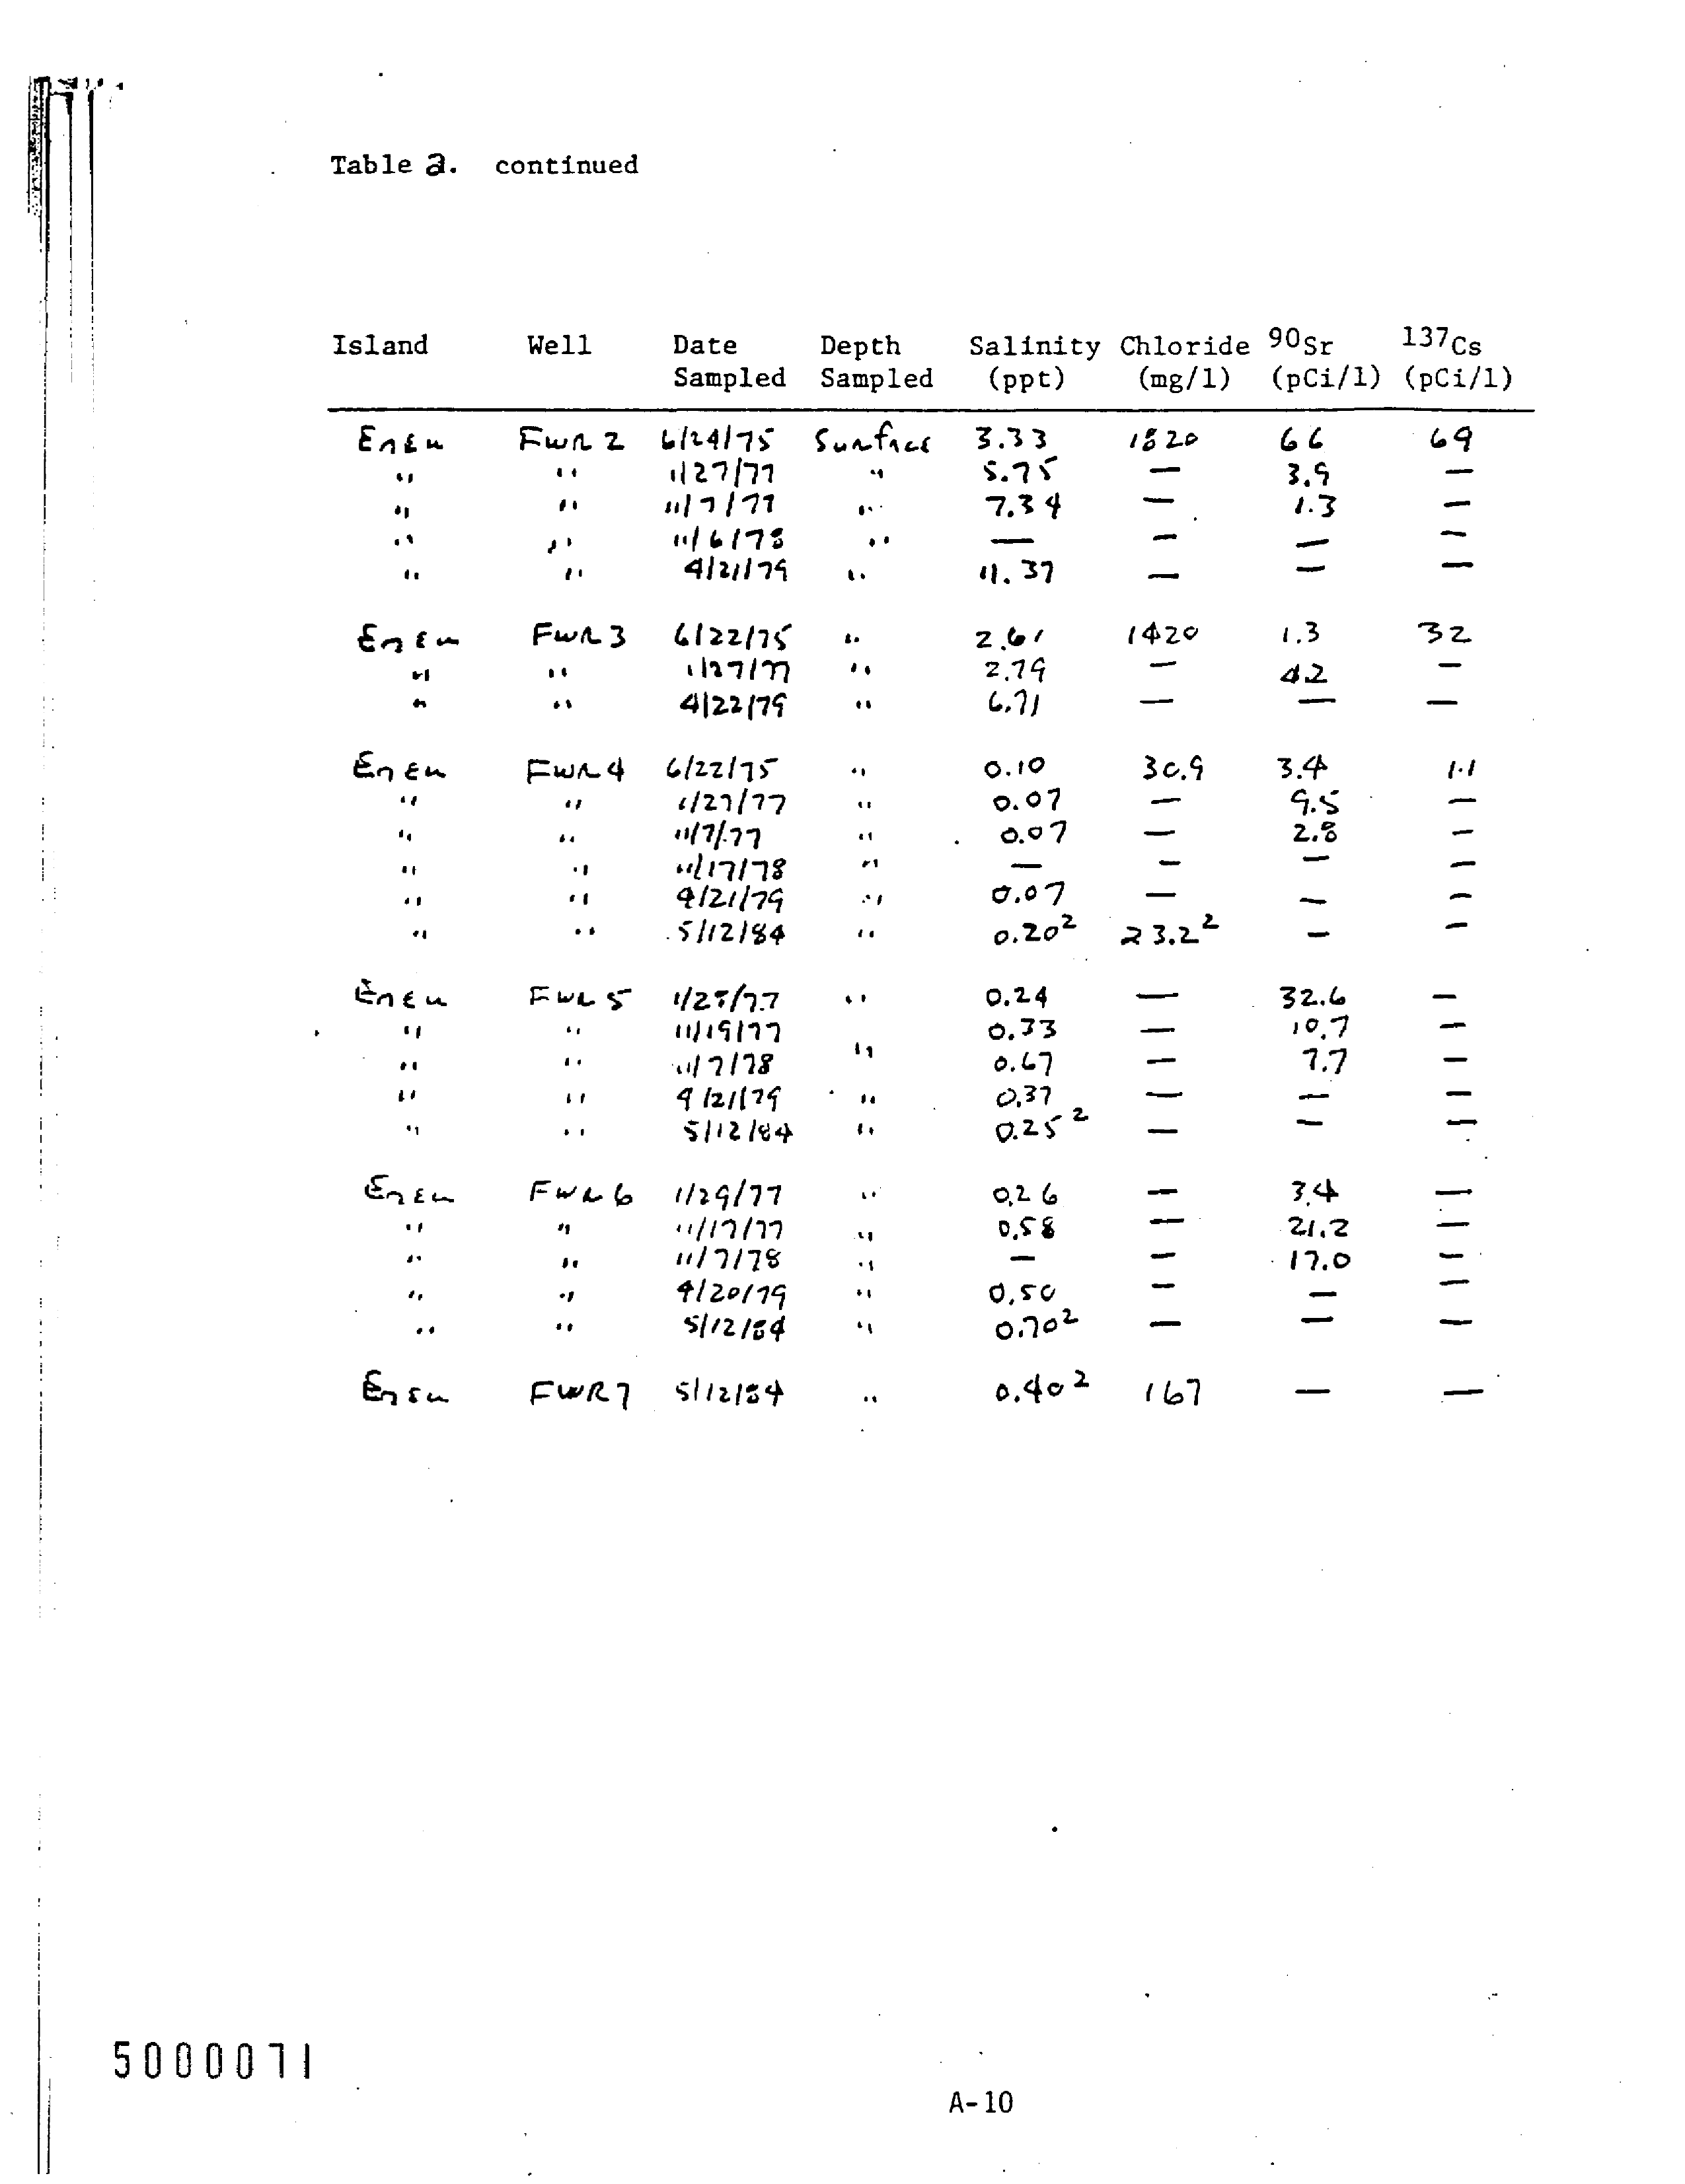 Table 2. continued
Island Well Date Depth Salinity Chloride 90Sr 137Cs
Sampled Sampled (ppt) (mg/l) (pCi/l) (pCi/l)
Eneu FWR 2 6/24/75 Surface 3.33 1820 66 69
" " 1/27/77 " 5.75 — 3.9 —
" " 11/7/77 " 7.34 — 1.3 —
" " 11/6/78 " — — — —
" " 4/21/79 " 11.37 — — —
Eneu FWR 3 6/22/75 " 2.61 1420 1.3 32
" " 1/27/77 " 2.79 — 4.2 —
" " 4/22/79 " 6.71 — — —
Eneu FWR 4 6/22/75 " 0.10 30.9 3.4 1.1
" " 1/27/77 " 0.07 — 9.5 —
" " 11/7/77 " 0.07 — 2.8 —
" " 11/17/78 " — — — —
" " 4/21/79 " 0.07 — — —
" " 5/12/84 " 0.20² 23.2² — —
Eneu FWR 5 1/28/77 " 0.24 — 32.6 —
" " 11/19/77 0.33 — 10.7 —
" " 11/7/78 " 0.67 — 7.7 —
" " 4/21/79 " 0.37 — — —
" " 5/12/84 " 0.25² — — —
Eneu FWR 6 1/29/77 " 0.26 — 3.4 —
" " 11/17/77 " 0.58 — 21.2 —
" " 11/7/78 " — — 17.0 —
" " 4/20/79 " 0.50 — — —
" " 5/12/84 " 0.70² — — —
Eneu FWR 7 5/12/84 " 0.40² 167 — —
5000071
A-10